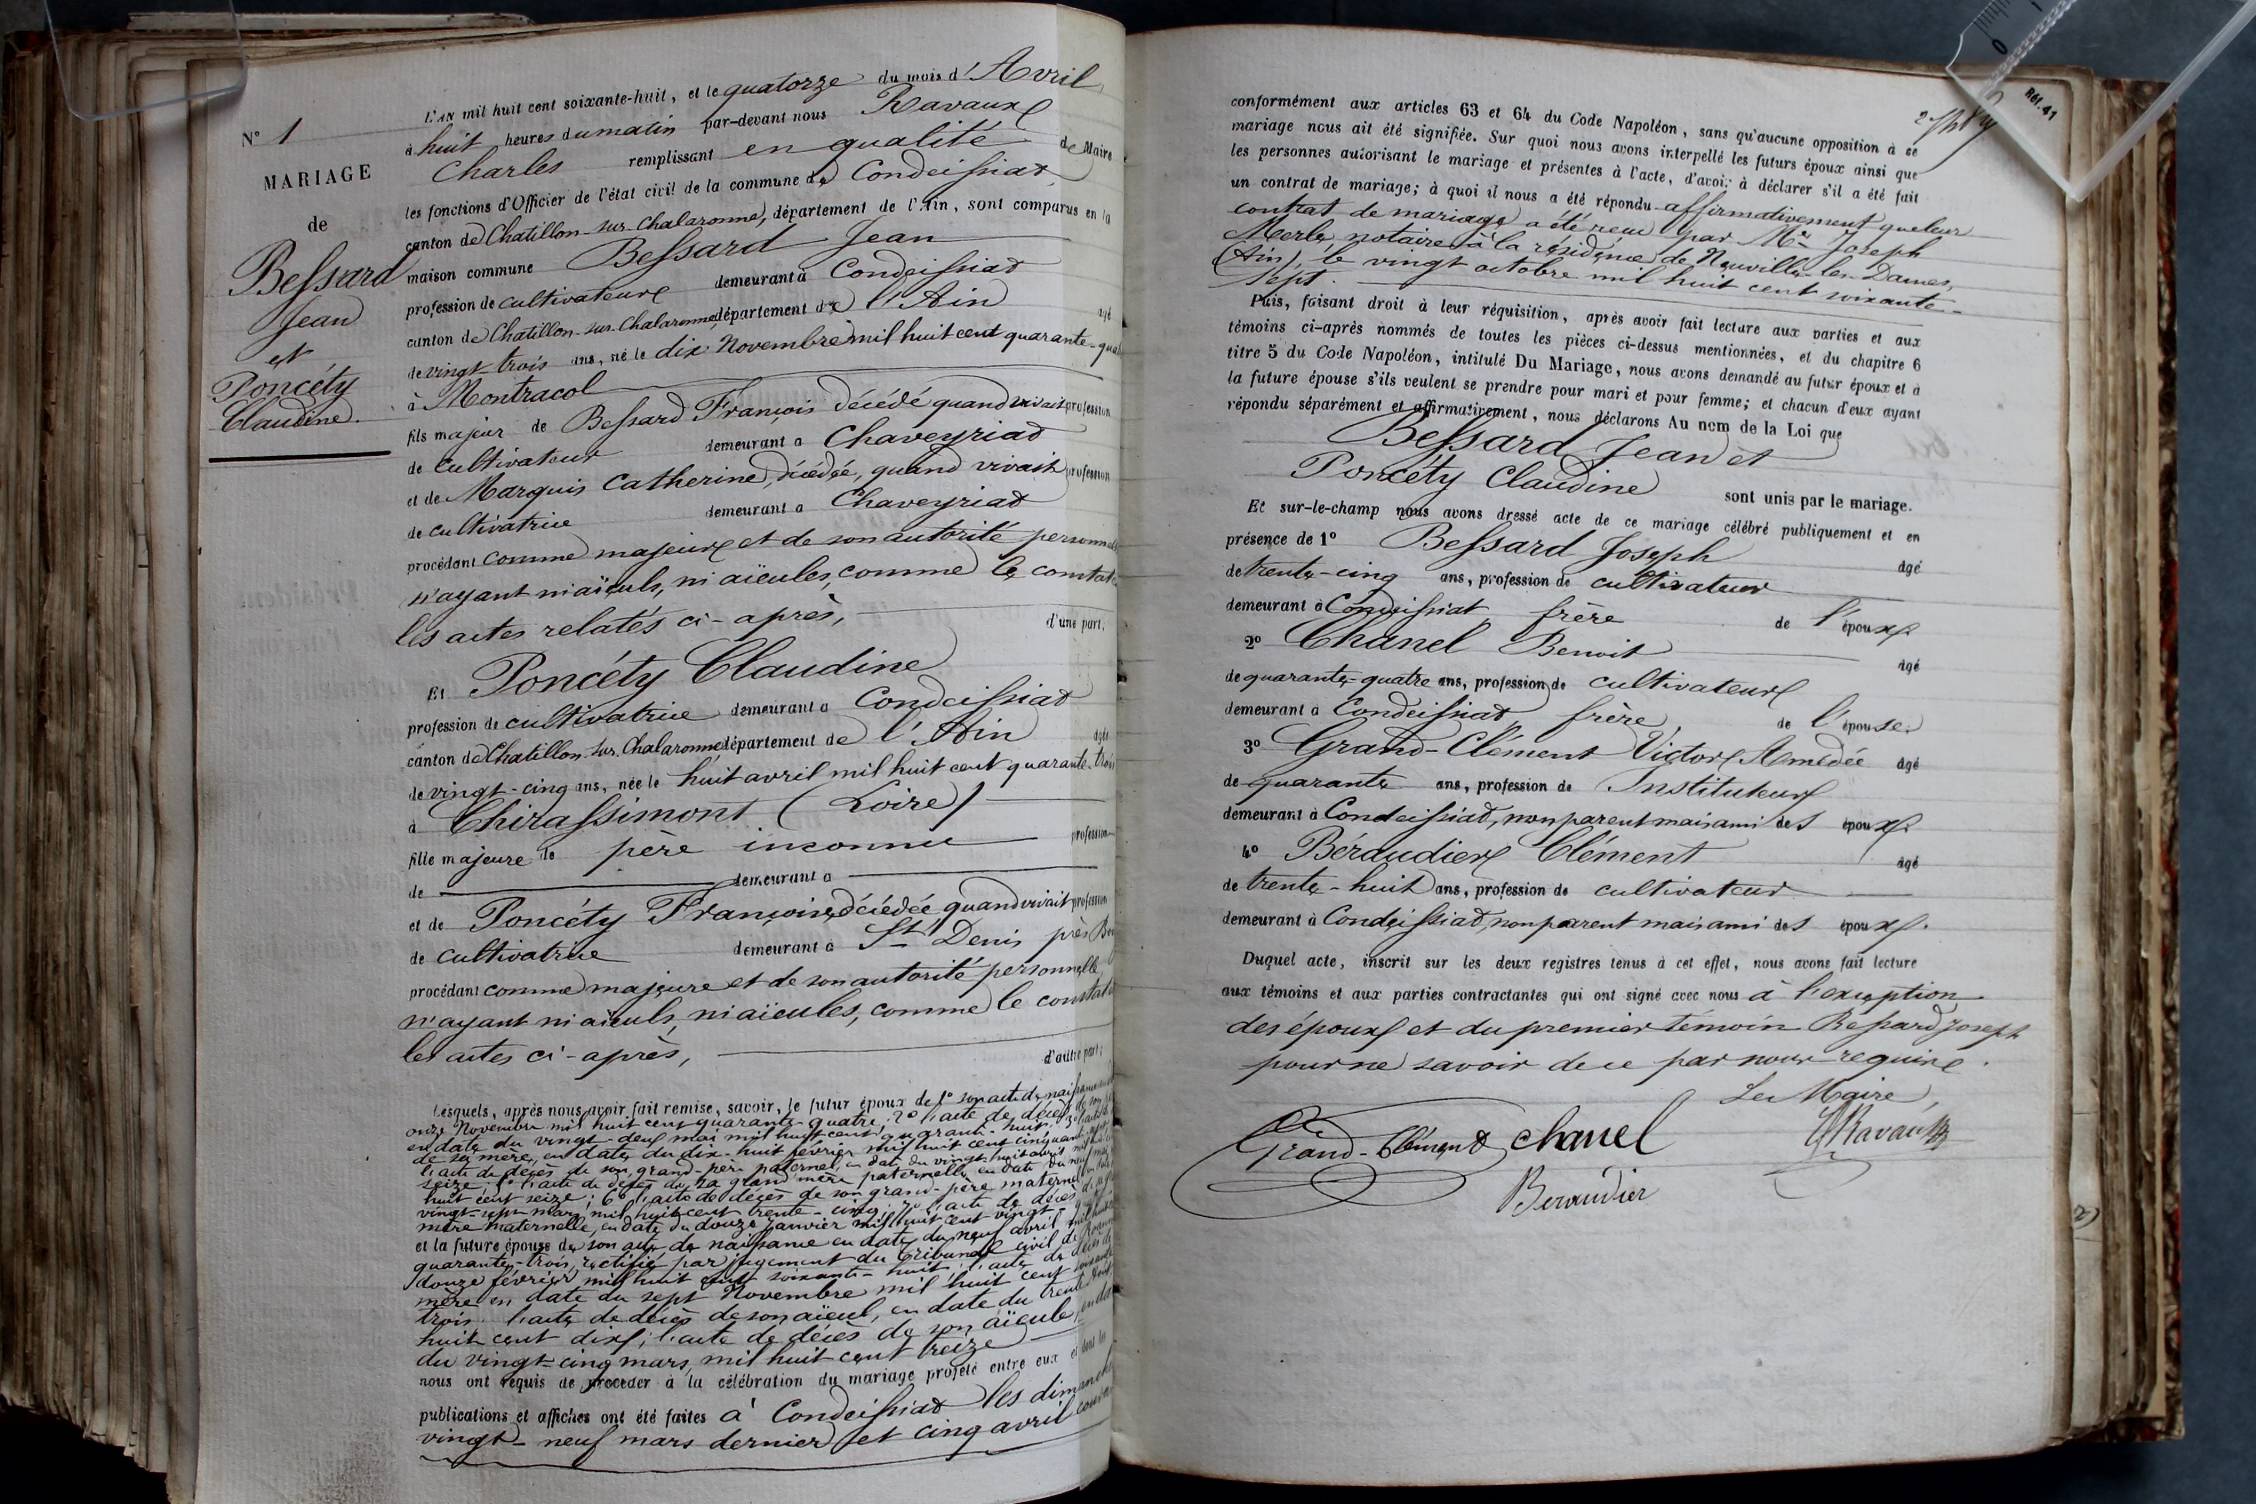 N° 1
MARIAGE
de
Bessard
Jean
et
Poncéty
Claudine.
L'AN mil huit cent soixante-huit, et le quatorze du mois d'Avril
à huit heures du matin par-devant nous Ravaux
Charles remplissant en qualité de Maire
les fonctions d'Officier de l'état civil de la commune de Condeissiat
canton de Chatillon-sur-Chalaronne, département de l'Ain, sont comparus en la
maison commune Bessard Jean
profession de cultivateur demeurant à Condeissiat
canton de Chatillon-sur-Chalaronne département de l'Ain âgé
de vingt-trois ans, né le dix Novembre mil huit cent quarante-
à Montracol
fils majeur de Bessard François décédé quand vivait profession
de cultivateur demeurant à Chaveyriat
et de Marquis Catherine, décédée, quand vivait profession
de cultivatrice demeurant à Chaveyriat
procédant comme majeur et de son autorité
n'ayant ni aïeuls, ni aïeules, comme le
les actes relatés ci-après, d'une part,
Et Poncéty Claudine
profession de cultivatrice demeurant à Condeissiat
canton de Chatillon-sur-Chalaronne département de l'Ain âgée
de vingt-cinq ans, née le huit avril mil huit cent quarante-trois
à Chirassimont (Loire)
fille majeure de père inconnu profession
de demeurant à
et de Poncéty Françoise, décédée, quand vivait profession
de cultivatrice demeurant à St Denis près
procédant comme majeure et de son autorité personnelle
n'ayant ni aïeuls, ni aïeules, comme le
les actes ci-après, d'autre part;
Lesquels, après nous avoir fait remise, savoir, le futur époux de 1° son acte de
onze Novembre mil huit cent quarante-quatre; 2° l'acte de décès de son
en date du vingt-deux mai mil huit cent quarante-huit; 3°
de sa mère, en date du dix-huit février mil huit cent
l'acte de décès de son grand-père paternel, en date du vingt-huit avril
seize; 5° l'acte de décès de sa grand'mère paternelle, en date du
huit cent seize; 6° l'acte de décès de son grand-père maternel
vingt-un mars mil huit cent trente-cinq; 7° l'acte de décès de
mère maternelle, en date du douze janvier mil huit cent vingt-
et la future épouse de son acte de naissance en date du neuf avril mil
quarante-trois, rectifié par jugement du Tribunal civil de Roanne
douze février mil huit cent soixante-huit; l'acte de décès de
mère en date du sept Novembre mil huit cent
trois; l'acte de décès de son aïeul, en date du trente
huit cent dix; l'acte de décès de son aïeule en
du vingt-cinq mars mil huit cent treize
nous ont requis de procéder à la célébration du mariage projeté entre eux et dont les
publications et affiches ont été faites à Condeissiat les
vingt-neuf mars dernier et cinq avril
conformément aux articles 63 et 64 du Code Napoléon, sans qu'aucune opposition à ce
mariage nous ait été signifiée. Sur quoi nous avons interpellé les futurs époux ainsi que
les personnes autorisant le mariage et présentes à l'acte, d'avoir à déclarer s'il a été fait
un contrat de mariage; à quoi il nous a été répondu affirmativement que leur
contrat de mariage a été reçu par Me Joseph
Merle, notaire à la résidence de Neuville-les-Dames,
(Ain), le vingt octobre mil huit cent soixante-
sept.
Puis, faisant droit à leur réquisition, après avoir fait lecture aux parties et aux
témoins ci-après nommés de toutes les pièces ci-dessus mentionnées, et du chapitre 6
titre 5 du Code Napoléon, intitulé Du Mariage, nous avons demandé au futur époux et à
la future épouse s'ils veulent se prendre pour mari et pour femme; et chacun d'eux ayant
répondu séparément et affirmativement, nous déclarons Au nom de la Loi que
Bessard Jean et
Poncéty Claudine sont unis par le mariage.
Et sur-le-champ nous avons dressé acte de ce mariage célébré publiquement et en
présence de 1° Bessard Joseph âgé
de trente-cinq ans, profession de cultivateur
demeurant à Condeissiat frère de l'époux.
2° Chanel Benoit âgé
de quarante-quatre ans, profession de cultivateur
demeurant à Condeissiat, frère de l'épouse.
3° Grand-Clément Victor Amédée âgé
de quarante ans, profession de Instituteur
demeurant à Condeissiat, non parent mais ami des époux.
4° Béraudier Clément âgé
de trente-huit ans, profession de cultivateur
demeurant à Condeissiat, non parent mais ami des époux.
Duquel acte, inscrit sur les deux registres tenus à cet effet, nous avons fait lecture
aux témoins et aux parties contractantes qui ont signé avec nous à l'exception
des époux et du premier témoin Bessard Joseph
pour ne savoir de ce par nous requis.
Le Maire,
Grand-Clément Chanel Ravaux
Beraudier
Réf. 41
0